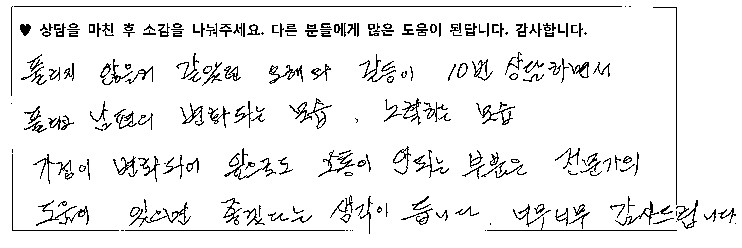 ♥ 상담을 마친 후 소감을 나눠주세요. 다른 분들에게 많은 도움이 된답니다. 감사합니다.
풀리지 않을거 같았던 오해와 갈등이 10번 상담하면서
풀리고 남편의 변화되는 모습, 노력하는 모습
가정이 변화되어 앞으로도 소통이 안되는 부분은 전문가의
도움이 있으면 좋겠다는 생각이 듭니다. 너무너무 감사드립니다